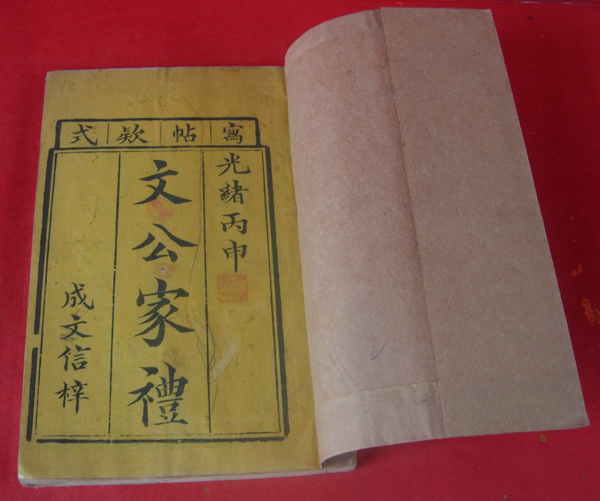 寫帖欵式
光緒丙申
文公家禮
成文信梓